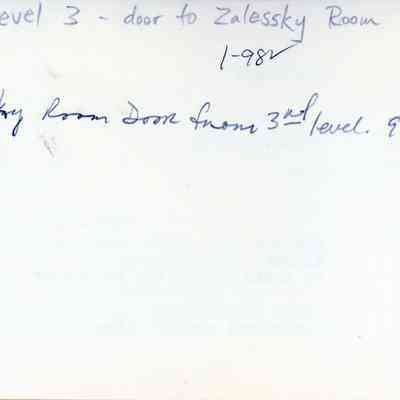 evel 3 - door to Zalessky Room
1-982
ky Room Door from 3rd level. 9